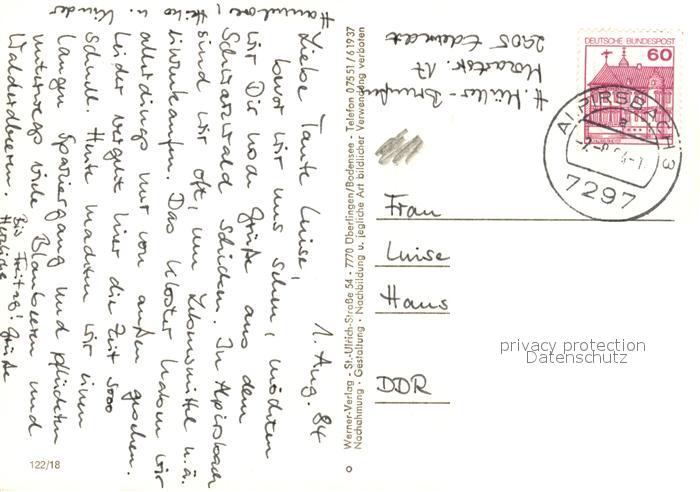 1. Aug. 84
Liebe Tante Luise,
bevor wir uns sehen, möchten
wir Dir noch Grüße aus dem
Schwarzwald schicken. In Alpirsbach
sind wir oft, um Lebensmittel u.ä.
einzukaufen. Das Kloster haben wir
allerdings nur von außen gesehen.
Leider vergeht hier die Zeit sooo
schnell. Heute machten wir einen
langen Spaziergang und pflückten
unterwegs viele Blaubeeren und
Walderdbeeren.
Bis Freitag! Grüße
Herzliche
Hannelore, Heiko u. Kinder
122/18
Werner-Verlag - St.-Ulrich-Straße 54 - 7770 Überlingen/Bodensee - Telefon 07551/61937
Nachahmung · Gestaltung · Nachbildung u. jegliche Art bildlicher Verwendung verboten
H. Müller-
Mozartstr. 17
2905 Edewecht
DEUTSCHE BUNDESPOST
60
ALPIRSBACH 3
a
7297
Frau
Luise
Haus
DDR
privacy protection
Datenschutz